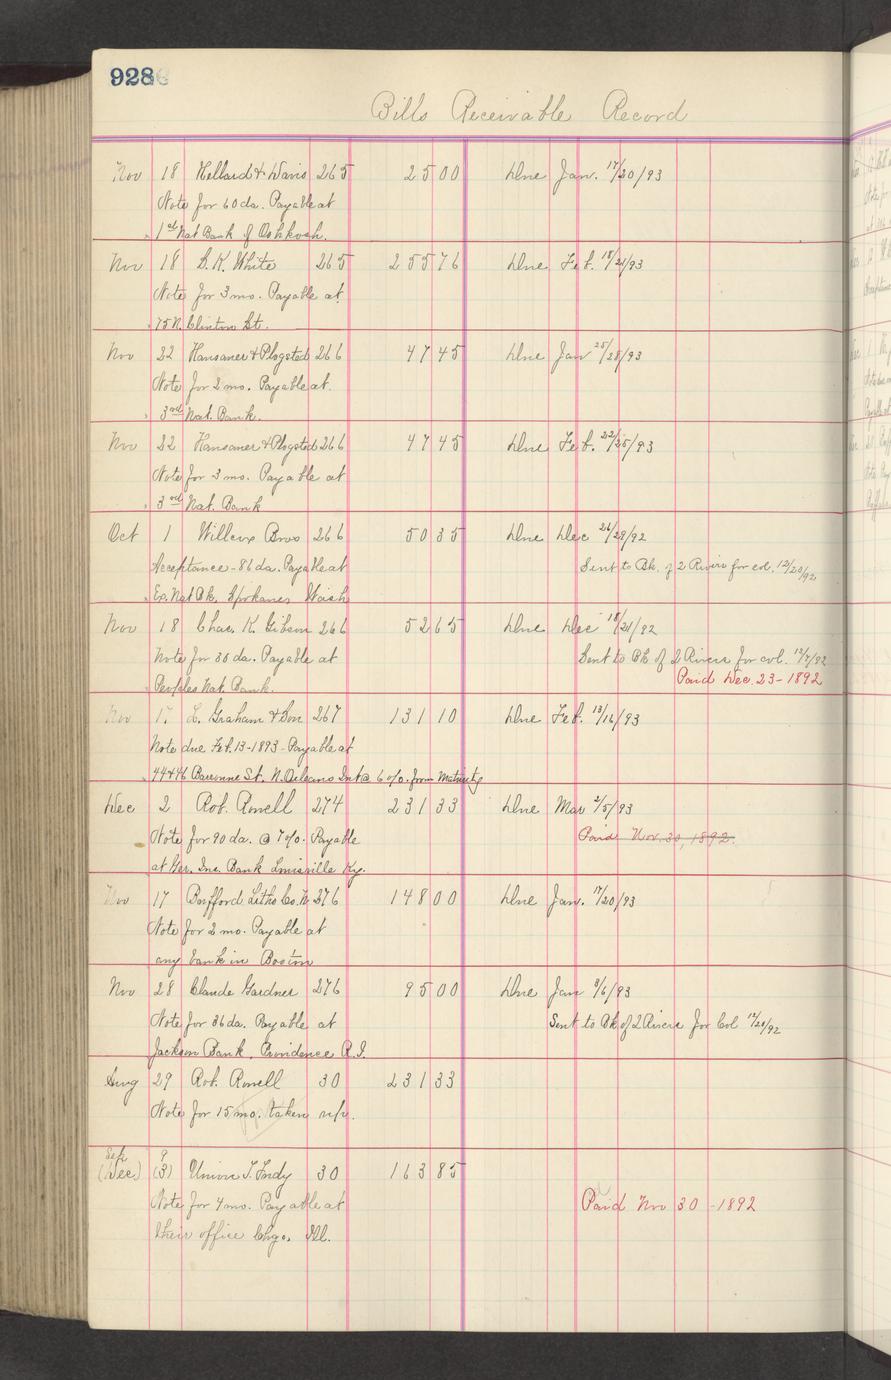 928
Bills Receivable Record
Nov 18 Hellard & Davis 265 25 00 Due Jan. 17/20/93
Note for 60 da. Payable at
1st Nat Bank of Oshkosh.
Nov 18 S. K. White 265 255 76 Due Feb. 18/21/93
Note for 3 mo. Payable at
75 N. Clinton St.
Nov 22 & Plogsted 266 47 45 Due Jan 25/28/93
Note for 2 mo. Payable at
3rd Nat. Bank.
Nov 22 & Plogsted 266 47 45 Due Feb. 22/25/93
Note for 3 mo. Payable at
3rd Nat. Bank
Oct 1 Willcox Bros 266 50 35 Due Dec 26/28/92
Acceptance - 86 da. Payable at
Ex. Nat Bk. Spokane, Wash
Sent to Bk. of 2 Rivers for col. 12/20/92
Nov 18 Chas. K. Gibson 266 52 65 Due Dec 18/21/92
Note for 30 da. Payable at
Peoples Nat. Bank.
Sent to Bk of 2 Rivers for col. 12/7/92
Paid Dec. 23 - 1892
Nov 17 L. Graham & Son 267 131 10 Due Feb. 13/16/93
Note due Feb. 13 - 1893 - Payable at
44 & 46 Baronne St. N. Orleans Int @ 6 o/o. from Maturity
Dec 2 Rob. Rowell 274 231 33 Due Mar 2/5/93
Note for 90 da. @ 7 o/o. Payable
at Ger. Ins. Bank Louisville Ky.
Paid Nov. 30, 1892.
Nov 17 Litho Co. 276 148 00 Due Jan. 17/20/93
Note for 2 mo. Payable at
any bank in Boston
Nov 28 Claude Gardner 276 95 00 Due Jan 3/6/93
Note for 36 da. Payable at
Jackson Bank, Providence R.I.
Sent to Bk of 2 Rivers for Col 12/20/92
Aug 29 Rob. Rowell 30 231 33
Note for 15 mo. taken up.
Sep 9
(Dec) (3) Union T. Indy 30 163 85
Note for 4 mo. Payable at
their office Chgo. Ill.
Paid Nov 30 - 1892